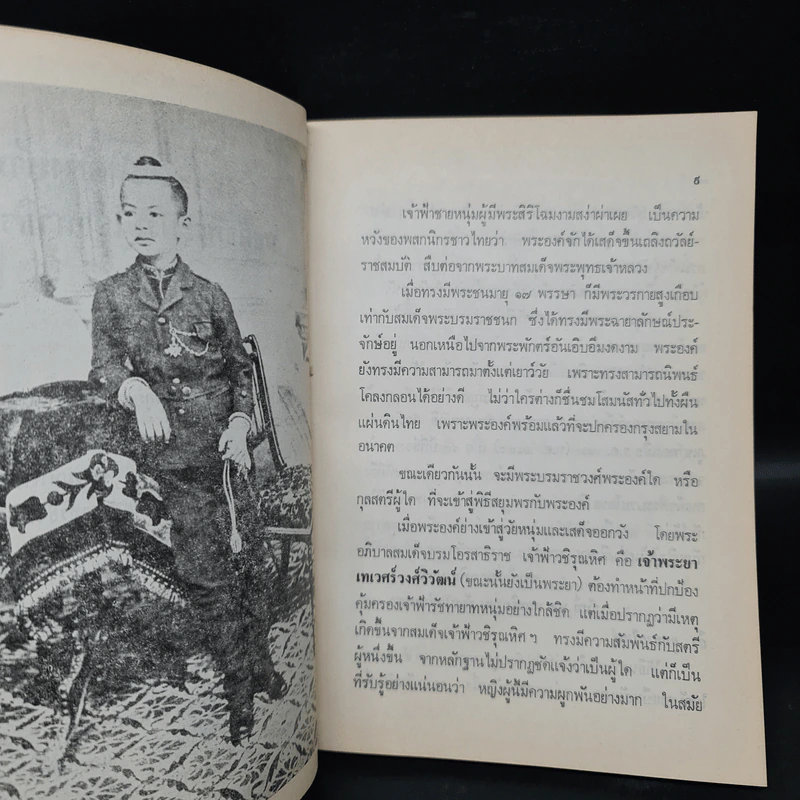 ๙
เจ้าฟ้าชายหนุ่มผู้มีพระสิริโฉมงามสง่าผ่าเผย เป็นความ
หวังของพสกนิกรชาวไทยว่า พระองค์จักได้เสด็จขึ้นเถลิงถวัลย์-
ราชสมบัติ สืบต่อจากพระบาทสมเด็จพระพุทธเจ้าหลวง
เมื่อทรงมีพระชนมายุ ๑๗ พรรษา ก็มีพระวรกายสูงเกือบ
เท่ากับสมเด็จพระบรมราชชนก ซึ่งได้ทรงมีพระฉายาลักษณ์ประ-
จักษ์อยู่ นอกเหนือไปจากพระพักตร์อันเอิบอิ่มงดงาม พระองค์
ยังทรงมีความสามารถมาตั้งแต่เยาว์วัย เพราะทรงสามารถนิพนธ์
โคลงกลอนได้อย่างดี ไม่ว่าใครต่างก็ชื่นชมโสมนัสทั่วไปทั้งผืน
แผ่นดินไทย เพราะพระองค์พร้อมแล้วที่จะปกครองกรุงสยามใน
อนาคต
ขณะเดียวกันนั้น จะมีพระบรมราชวงศ์พระองค์ใด หรือ
กุลสตรีผู้ใด ที่จะเข้าสู่พิธีสยุมพรกับพระองค์
เมื่อพระองค์ย่างเข้าสู่วัยหนุ่มและเสด็จออกวัง โดยพระ
อภิบาลสมเด็จบรมโอรสาธิราช เจ้าฟ้าวชิรุณหิศ คือ เจ้าพระยา
เทเวศร์วงศ์วิวัฒน์ (ขณะนั้นยังเป็นพระยา) ต้องทำหน้าที่ปกป้อง
คุ้มครองเจ้าฟ้ารัชทายาทหนุ่มอย่างใกล้ชิด แต่เมื่อปรากฏว่ามีเหตุ
เกิดขึ้นจากสมเด็จเจ้าฟ้าวชิรุณหิศ ฯ ทรงมีความสัมพันธ์กับสตรี
ผู้หนึ่งขึ้น จากหลักฐานไม่ปรากฏชัดแจ้งว่าเป็นผู้ใด แต่ก็เป็น
ที่รับรู้อย่างแน่นอนว่า หญิงผู้นี้มีความผูกพันอย่างมาก ในสมัย